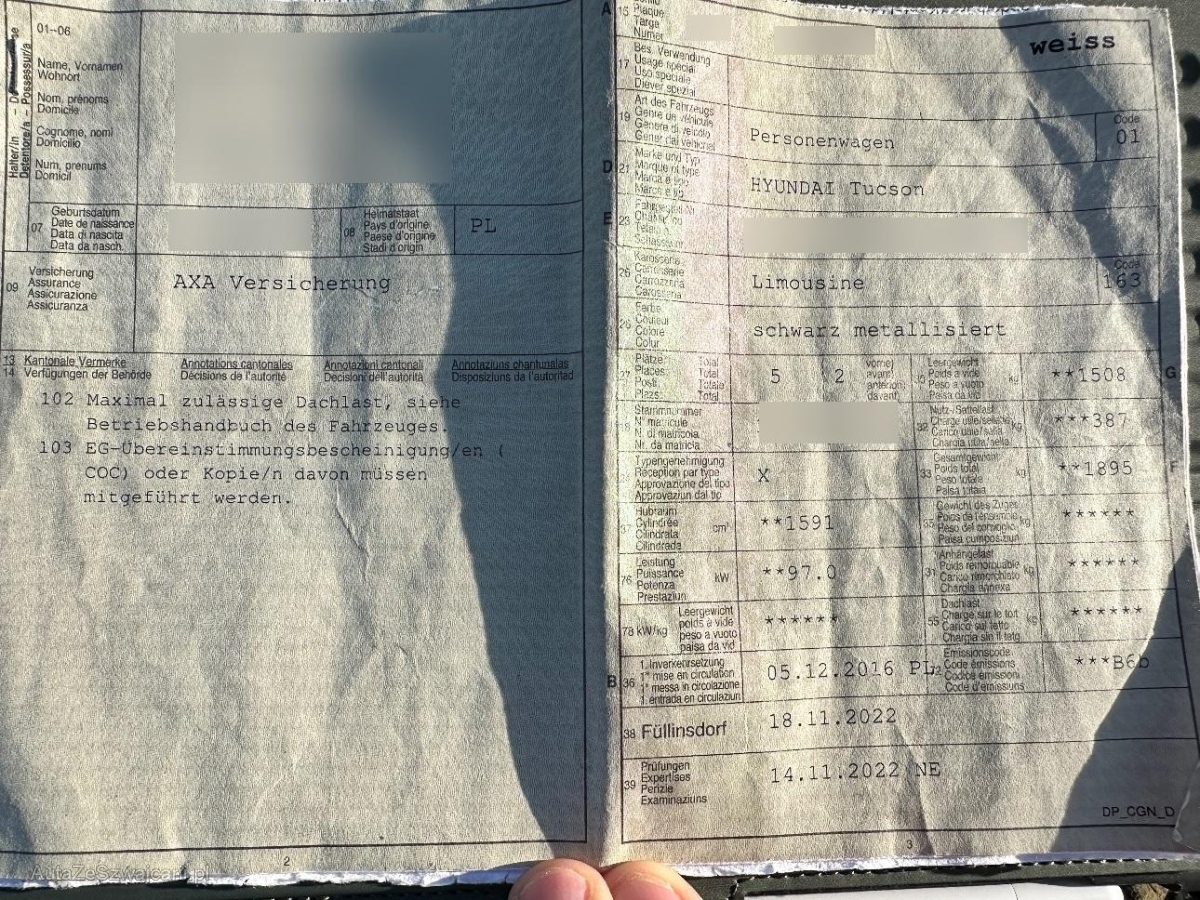 01--06
Name, Vornamen
Wohnort
Nom, prénoms
Domicile
Cognome, nomi
Domicilio
Num, prenums
Domicil
07
Geburtsdatum
Date de naissance
Data di nascita
Data da nasch.
08
Heimatstaat
Pays d'origine
Paese d'origine
Stadi d'origin
PL
09
Versicherung
Assurance
Assicurazione
Assicuranza
AXA Versicherung
13 Kantonale Vermerke Annotations cantonales Annotazioni cantonali Annotaziuns chantunalas
14 Verfügungen der Behörde Décisions de l'autorité Decisioni dell'autorità Disposiziuns da l'autoritad
102 Maximal zulässige Dachlast, siehe
Betriebshandbuch des Fahrzeuges.
103 EG-Übereinstimmungsbescheinigung/en (
COC) oder Kopie/n davon müssen
mitgeführt werden.
2
A
15
Plaque
Targa
Numer
weiss
17
Bes. Verwendung
Usage spécial
Uso speciale
Diever spezial
19
Art des Fahrzeugs
Genre de véhicule
Genere di veicolo
Gener dal vehichel
Personenwagen
Code
01
D 21
Marke und Typ
Marque et type
Marca e tipo
Marca e tip
HYUNDAI Tucson
E 23
25
Karosserie
Carrosserie
Carrozzeria
Carossaria
Limousine
Code
163
26
Farbe
Couleur
Colore
Colur
schwarz metallisiert
27
Plätze Total
Places Total
Posti Totale
Plazs Total
5 2
vorne
avant
anteriori
davant
Leergewicht
Poids à vide
Peso a vuoto
Paisa da vid
kg
**1508
G
18
Stammnummer
N° matricule
N. di matricola
Nr. da matricla
32
Nutz-/Sattellast
Charge utile/sellette
Carico utile/sella
Chargia utila/sella
kg
***387
Typengenehmigung
Réception par type
Approvazione del tipo
Approvaziun dal tip
X
33
Gesamtgewicht
Poids total
Peso totale
Paisa totala
kg
**1895
F
37
Hubraum
Cylindrée
Cilindrata
Cilindrada
cm³
**1591
35
Gewicht des Zuges
Poids de l'ensemble
Peso del convoglio
Paisa cumposiziun
kg
******
76
Leistung
Puissance
Potenza
Prestaziun
kW
**97.0
31
Anhängelast
Poids remorquable
Carico rimorchiato
Chargia annexa
kg
******
78 kW/kg
Leergewicht
poids à vide
peso a vuoto
paisa da vid
******
55
Dachlast
Charge sur le toit
Carico sul tetto
Chargia sin il tetg
kg
******
B 36
1. Inverkehrsetzung
1re mise en circulation
1a messa in circolazione
1. entrada en circulaziun
05.12.2016 PL
72
Emissionscode
Code émissions
Codice emissioni
Code d'emissiuns
***B6b
38 Füllinsdorf
18.11.2022
39
Prüfungen
Expertises
Perizie
Examinaziuns
14.11.2022 NE
DP_CGN_D
3
AutaZeSzwajcarii.pl